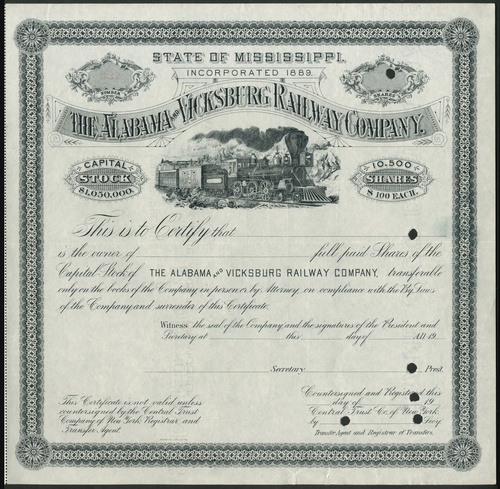 STATE OF MISSISSIPPI.
INCORPORATED 1889.
NUMBER
SHARES
THE ALABAMA AND VICKSBURG RAILWAY COMPANY.
CAPITAL
STOCK
$1,050,000.
10,500
SHARES
$100 EACH.
This is to Certify that
is the owner of full paid Shares of the
Capital Stock of THE ALABAMA AND VICKSBURG RAILWAY COMPANY, transferable
only on the books of the Company in person or by Attorney, on compliance with the By Laws
of the Company and surrender of this Certificate.
Witness the seal of the Company and the signatures of the President and
Secretary at this day of A.D. 19
Secretary. Prest.
This Certificate is not valid unless
countersigned by the Central Trust
Company of New York, Registrar and
Transfer Agent.
Countersigned and Registered this
day of 19
Central Trust Co. of New York.
by Secy
Transfer Agent and Registrar of Transfers.